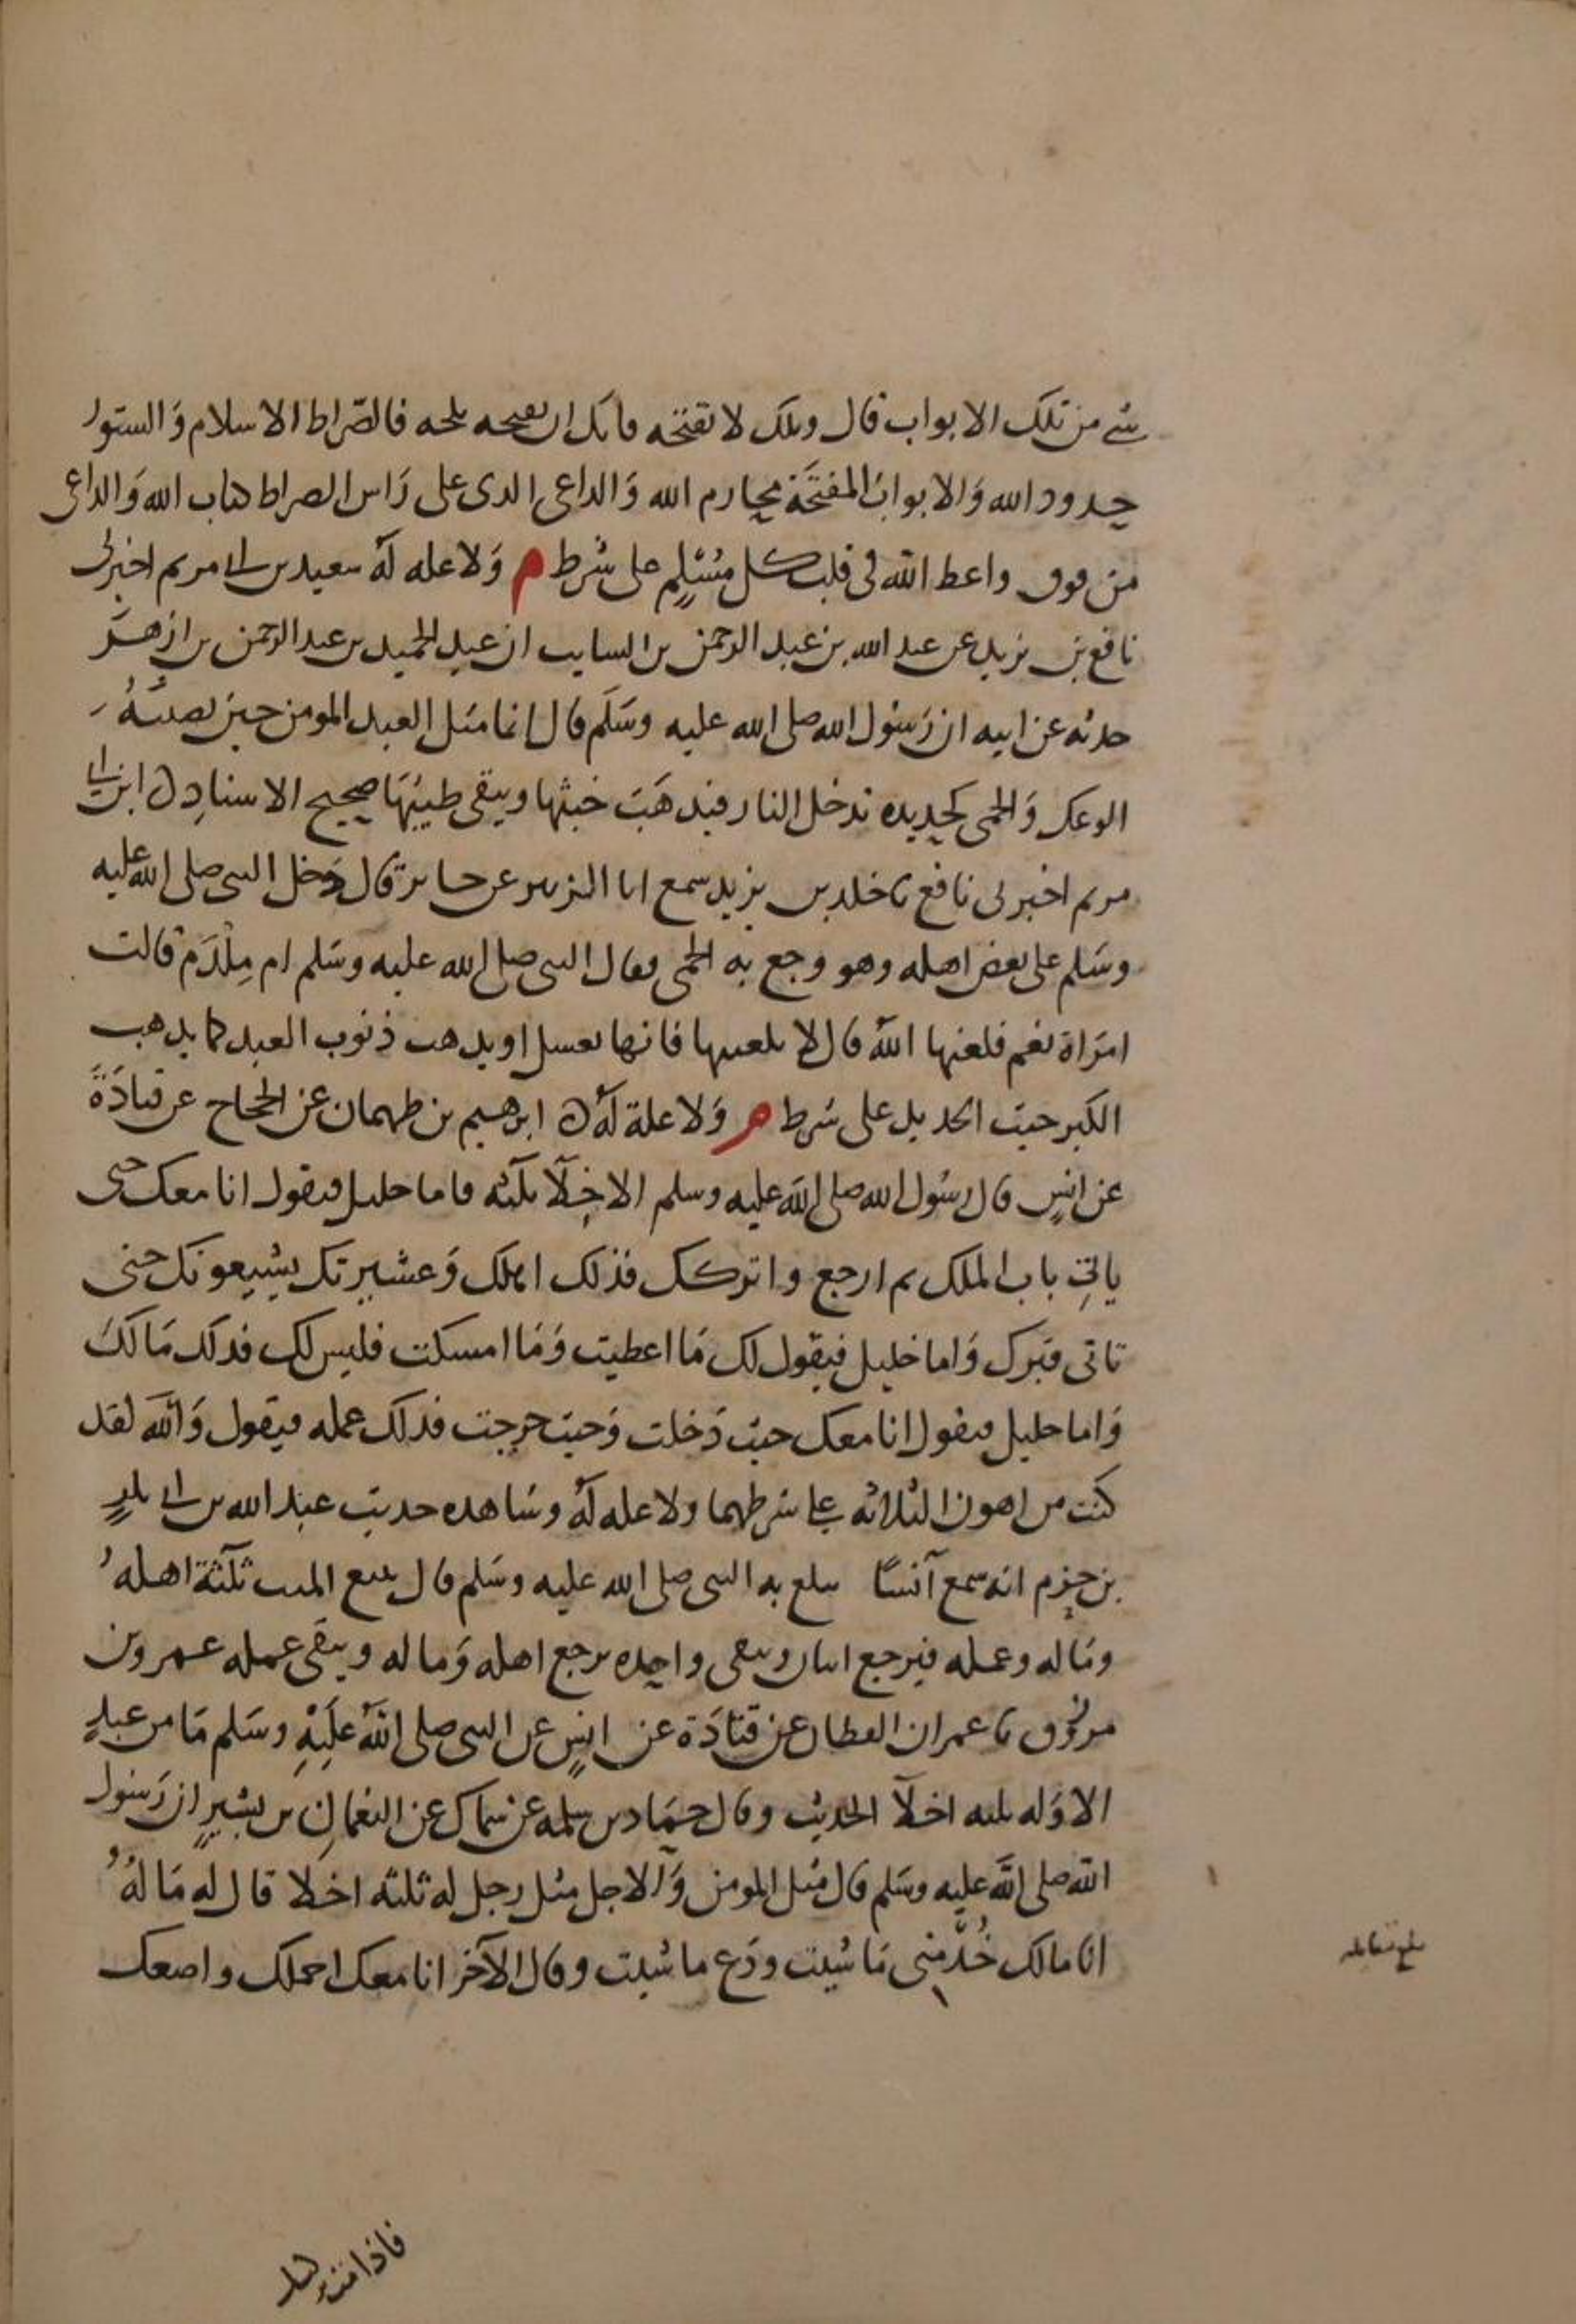 شي من تلك الابواب قال ويلك لا تفتحه فانك ان تفتحه تلجه فالصراط الاسلام والستور
حدود الله والابواب المفتحة محارم الله والداعى الذى على راس الصراط كتاب الله والداعى
من فوق واعظ الله فى قلب كل مسلم على شرط م ولا علة له سعيد بن ابى مريم اخبرنى
نافع بن يزيد عن عبد الله بن عبد الرحمن بن السايب ان عبد الحميد بن عبد الرحمن بن ازهر
حدثه عن ابيه ان رسول الله صلى الله عليه وسلم قال انما مثل العبد المومن حين يصيبه
الوعك والحمى كحديدة تدخل النار فيذهب خبثها ويبقى طيبها صحيح الاسناد ابن ابى
مريم اخبرنى نافع نا خلد بن يزيد سمع ابا الزبير عن جابر قال دخل النبى صلى الله عليه
وسلم على بعض اهله وهو وجع به الحمى فقال النبى صلى الله عليه وسلم ام ملدم قالت
امراة نعم فلعنها الله قال لا تلعنيها فانها تغسل او يذهب ذنوب العبد كما يذهب
الكير خبث الحديد على شرط م ولا علة له ابرهيم بن طهمان عن الحجاج عن قتادة
عن انس قال رسول الله صلى الله عليه وسلم الاخلا ثلثه فاما خليل فيقول انا معك حتى
ياتى باب الملك ثم ارجع واتركك فذلك اهلك وعشيرتك يشيعونك حتى
تاتى قبرك واما خليل فيقول لك ما اعطيت وما امسكت فليس لك فذلك مالك
واما خليل فيقول انا معك حيث دخلت وحيث خرجت فذلك عمله فيقول والله لقد
كنت من اهون الثلاثه على شرطهما ولا علة له وشاهده حديث عبد الله بن ابى بكر
بن حزم انه سمع انسا يبلغ به النبى صلى الله عليه وسلم قال يتبع الميت ثلثة اهله
وماله وعمله فيرجع اثنان ويبقى واحده يرجع اهله وماله ويبقى عمله عمرو بن
مرزوق نا عمران القطان عن قتادة عن انس عن النبى صلى الله عليه وسلم ما من عبد
الا وله ثلثه اخلا الحديث وقال حماد بن سلمه عن سماك عن النعمان بن بشير ان رسول
الله صلى الله عليه وسلم قال مثل المومن والاجل مثل رجل له ثلثة اخلا قال له ماله
انا مالك خذ منى ما شيت ودع ما شيت وقال الآخر انا معك احملك واضعك
بلغ مقابله